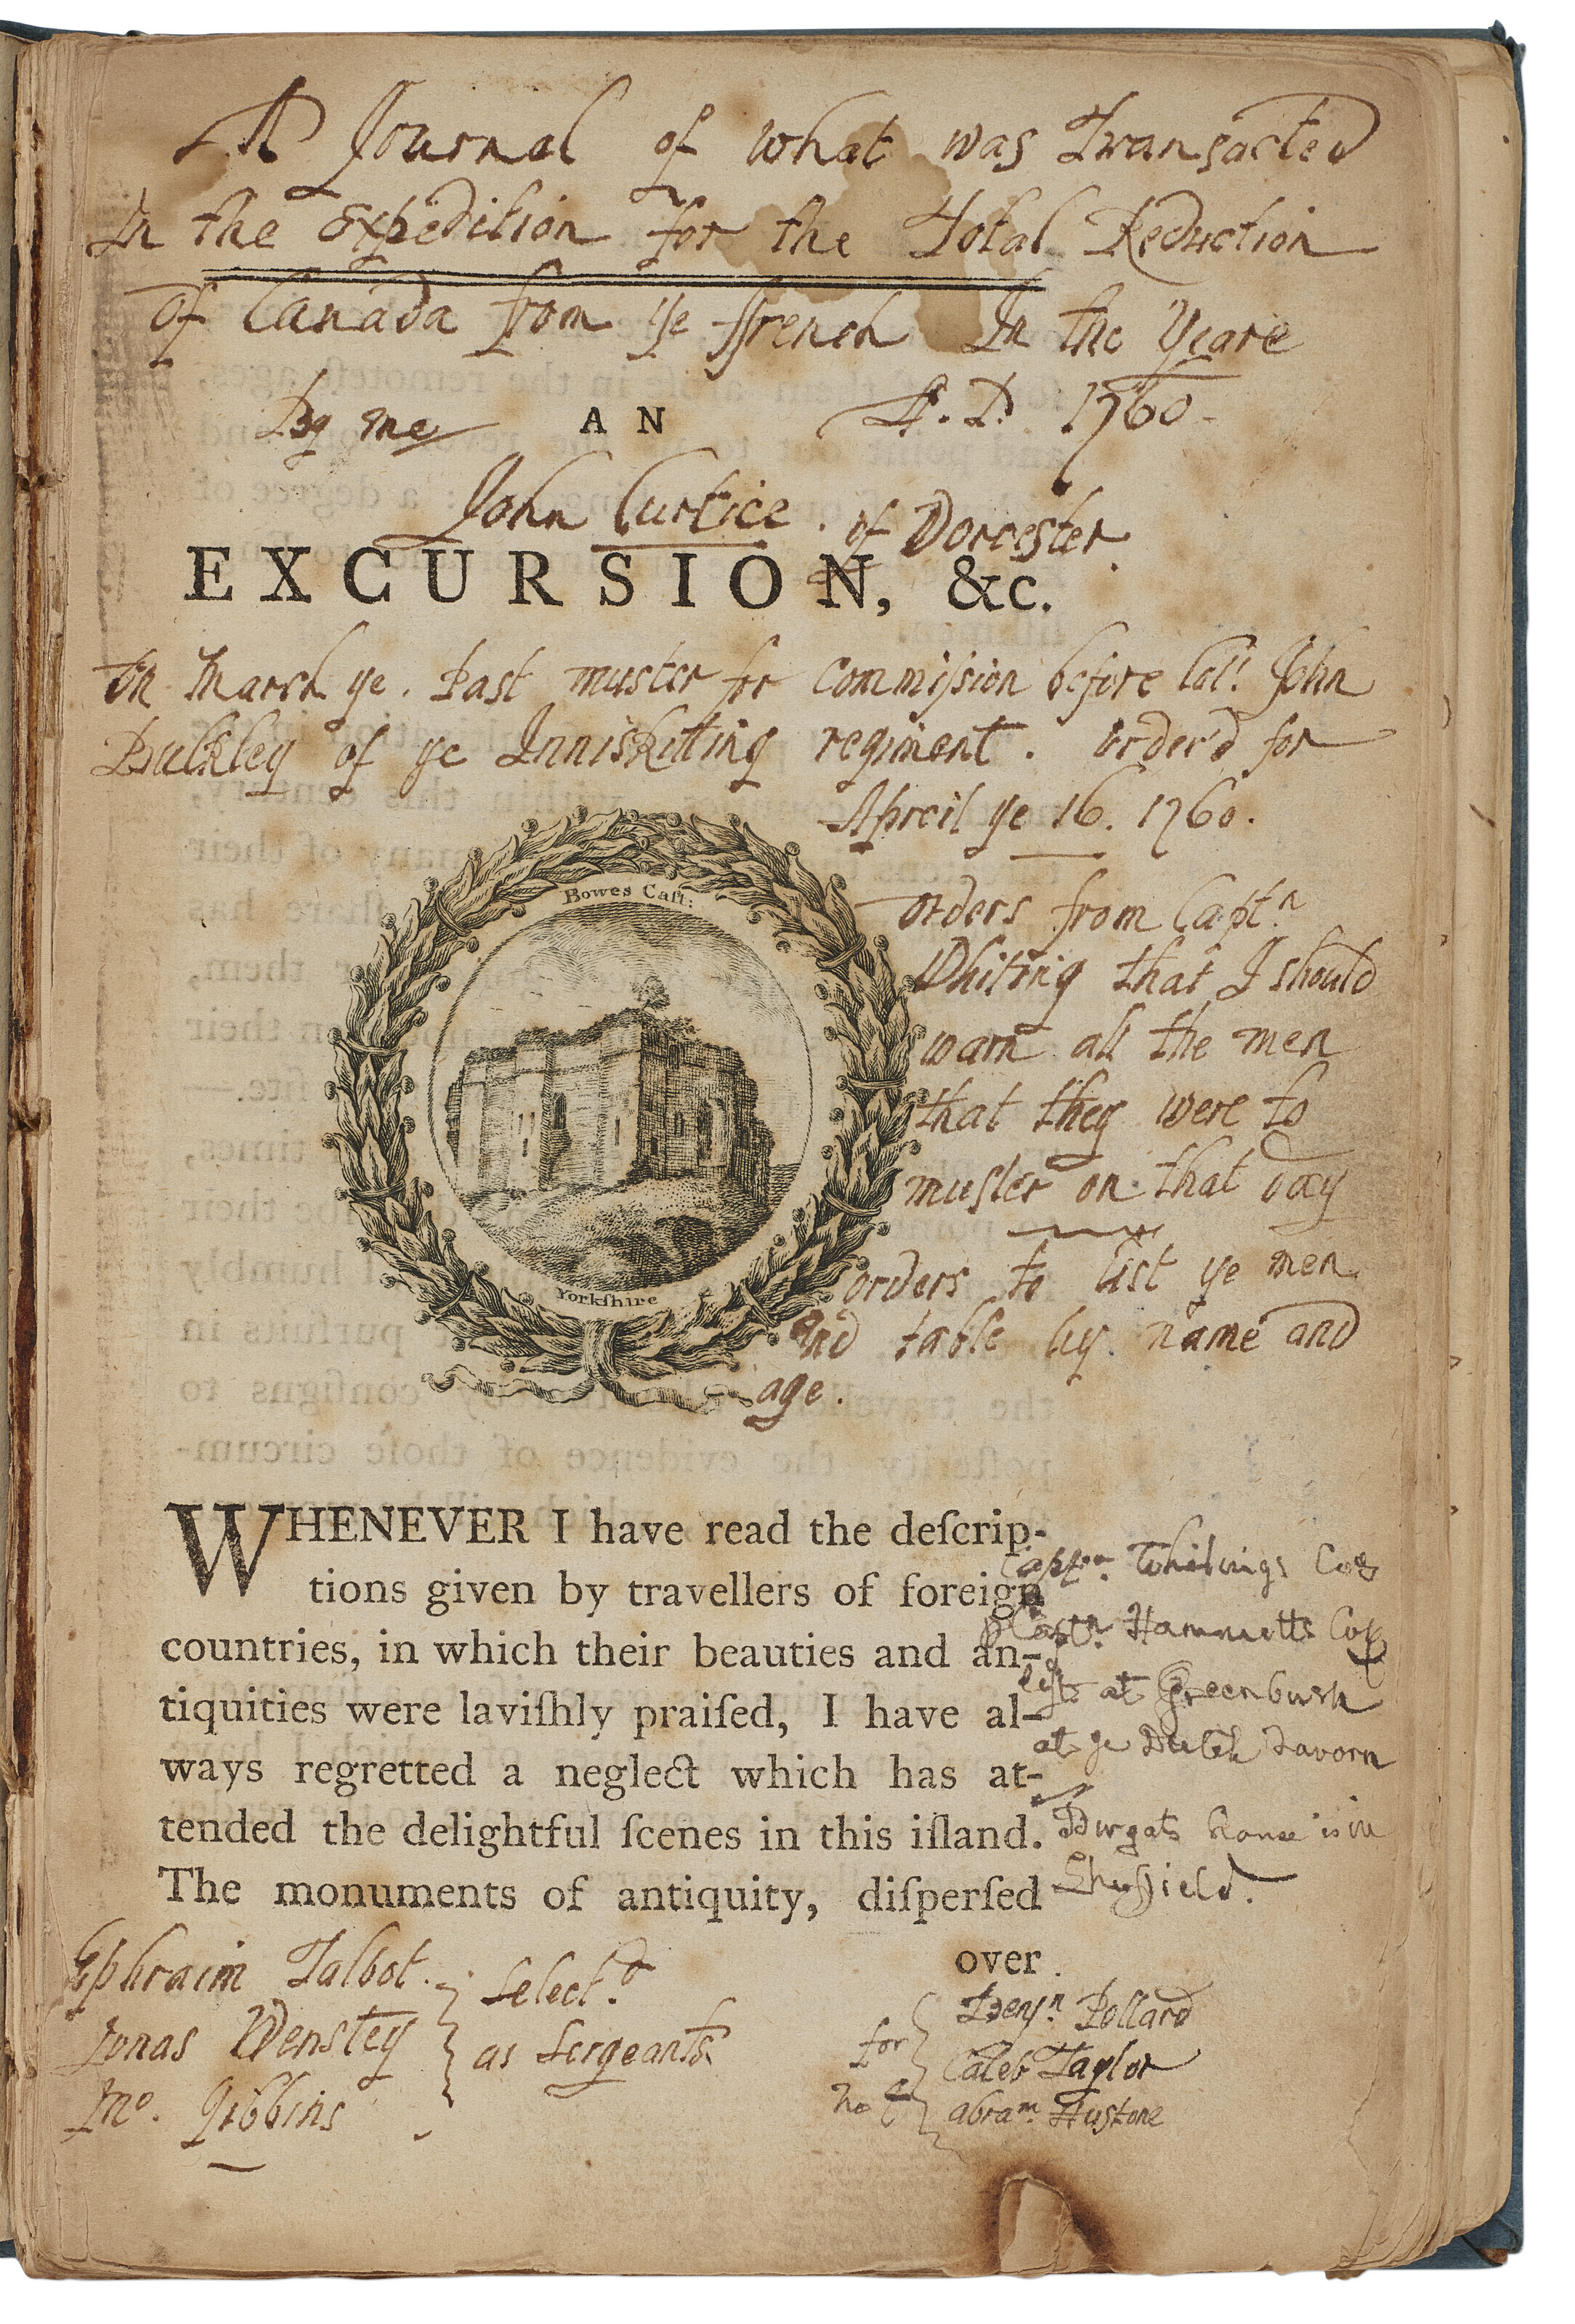 A Journal of what was Transacted
In the Expedition for the Total Reduction
of Canada from ye ffrench In the Yeare
By me A.D. 1760.
AN
John Curtice. of Dorcester.
EXCURSION, &c.
On March ye. Past muster for Commiſsion before Col! John
Bulkley of ye Inniskilling regiment. order'd for
Apreil ye 16. 1760.
orders from Captn
Whiting that I should
warn all the men
that they were to
muster on that day
orders to List ye men
and table by name and
age.
Bowes Caſt:
Yorkſhire
WHENEVER I have read the deſcrip-
tions given by travellers of foreign
countries, in which their beauties and an-
tiquities were laviſhly praiſed, I have al-
ways regretted a neglect which has at-
tended the delightful ſcenes in this iſland.
The monuments of antiquity, diſperſed
over
Capt. Whitings Co
Captn. Hammetts Co
at Greenbush
at ye Dutch Tavorn
house is in
Sheffield.
Ephraim Talbot.
Jonas Wensley
Mo. Gibbins
Select.d
as Sergeants
for
no
Benjn. Pollard
Caleb Taylor
abram. Hustone